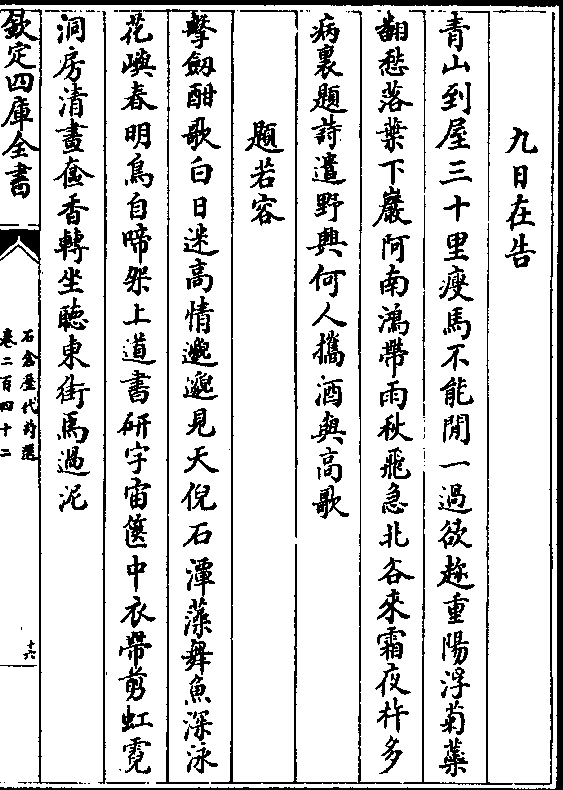 九日在告
青山到屋三十里瘦馬不能閒一過欲趂重陽浮菊蘂
翻愁落葉下巖阿南鴻帶雨秋飛急北客來霜夜杵多
病裏題詩遣野興何人攜酒與高歌
題若容
擊劒酣歌白日迷高情邈邈見天倪石潭藻舞魚深泳
花嶼春明鳥自啼架上道書研宇宙篋中衣帶剪虹霓
洞房清晝奩香轉坐聽東街馬過泥
欽定四庫全書
石倉歴代詩選
卷二百四十二
十六